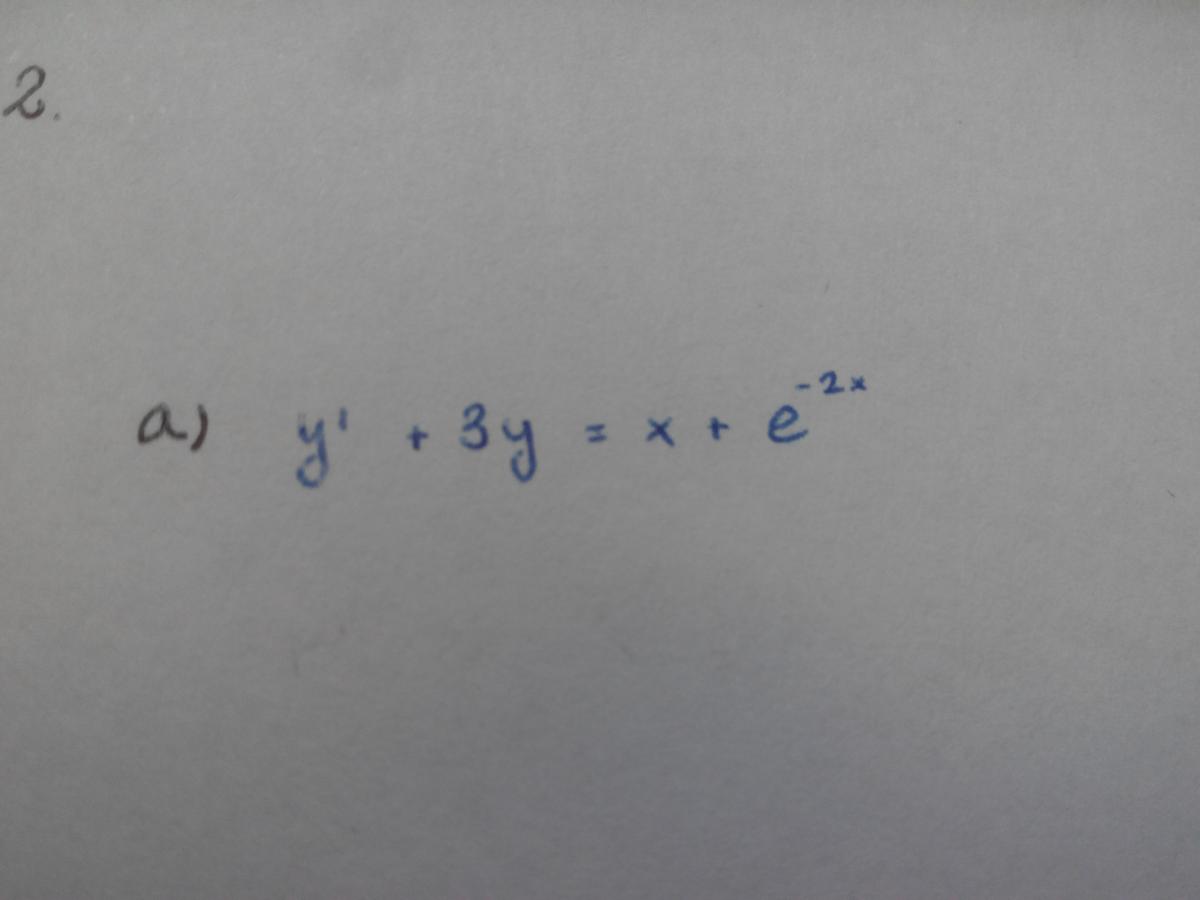 2.
a) y' + 3y = x + e^{-2x}